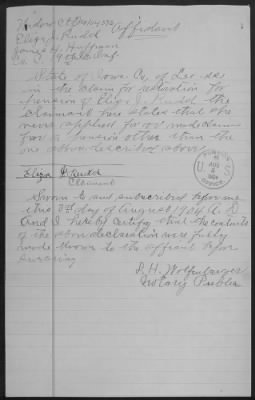 Widow
Affidavit
Eliza J. Rudd
James H. Huffman
Co. C. 19 Cav
State of Iowa Co. of Lee ss
in the claim for restoration for
pension of Eliza J. Rudd the
claimant here states that she
never applied for or made claim
for a pension other than the
one above described above
PENSION
U.S.
AUG
OFFICE
Eliza J. Rudd
Claimant
Sworn to and subscribed before me
this 3rd day of August 1904 A. D.
And I hereby certify that the contents
of the above declaration were fully
made known to the affiant before
swearing
S. H. Wolfenbarger
Notary Public